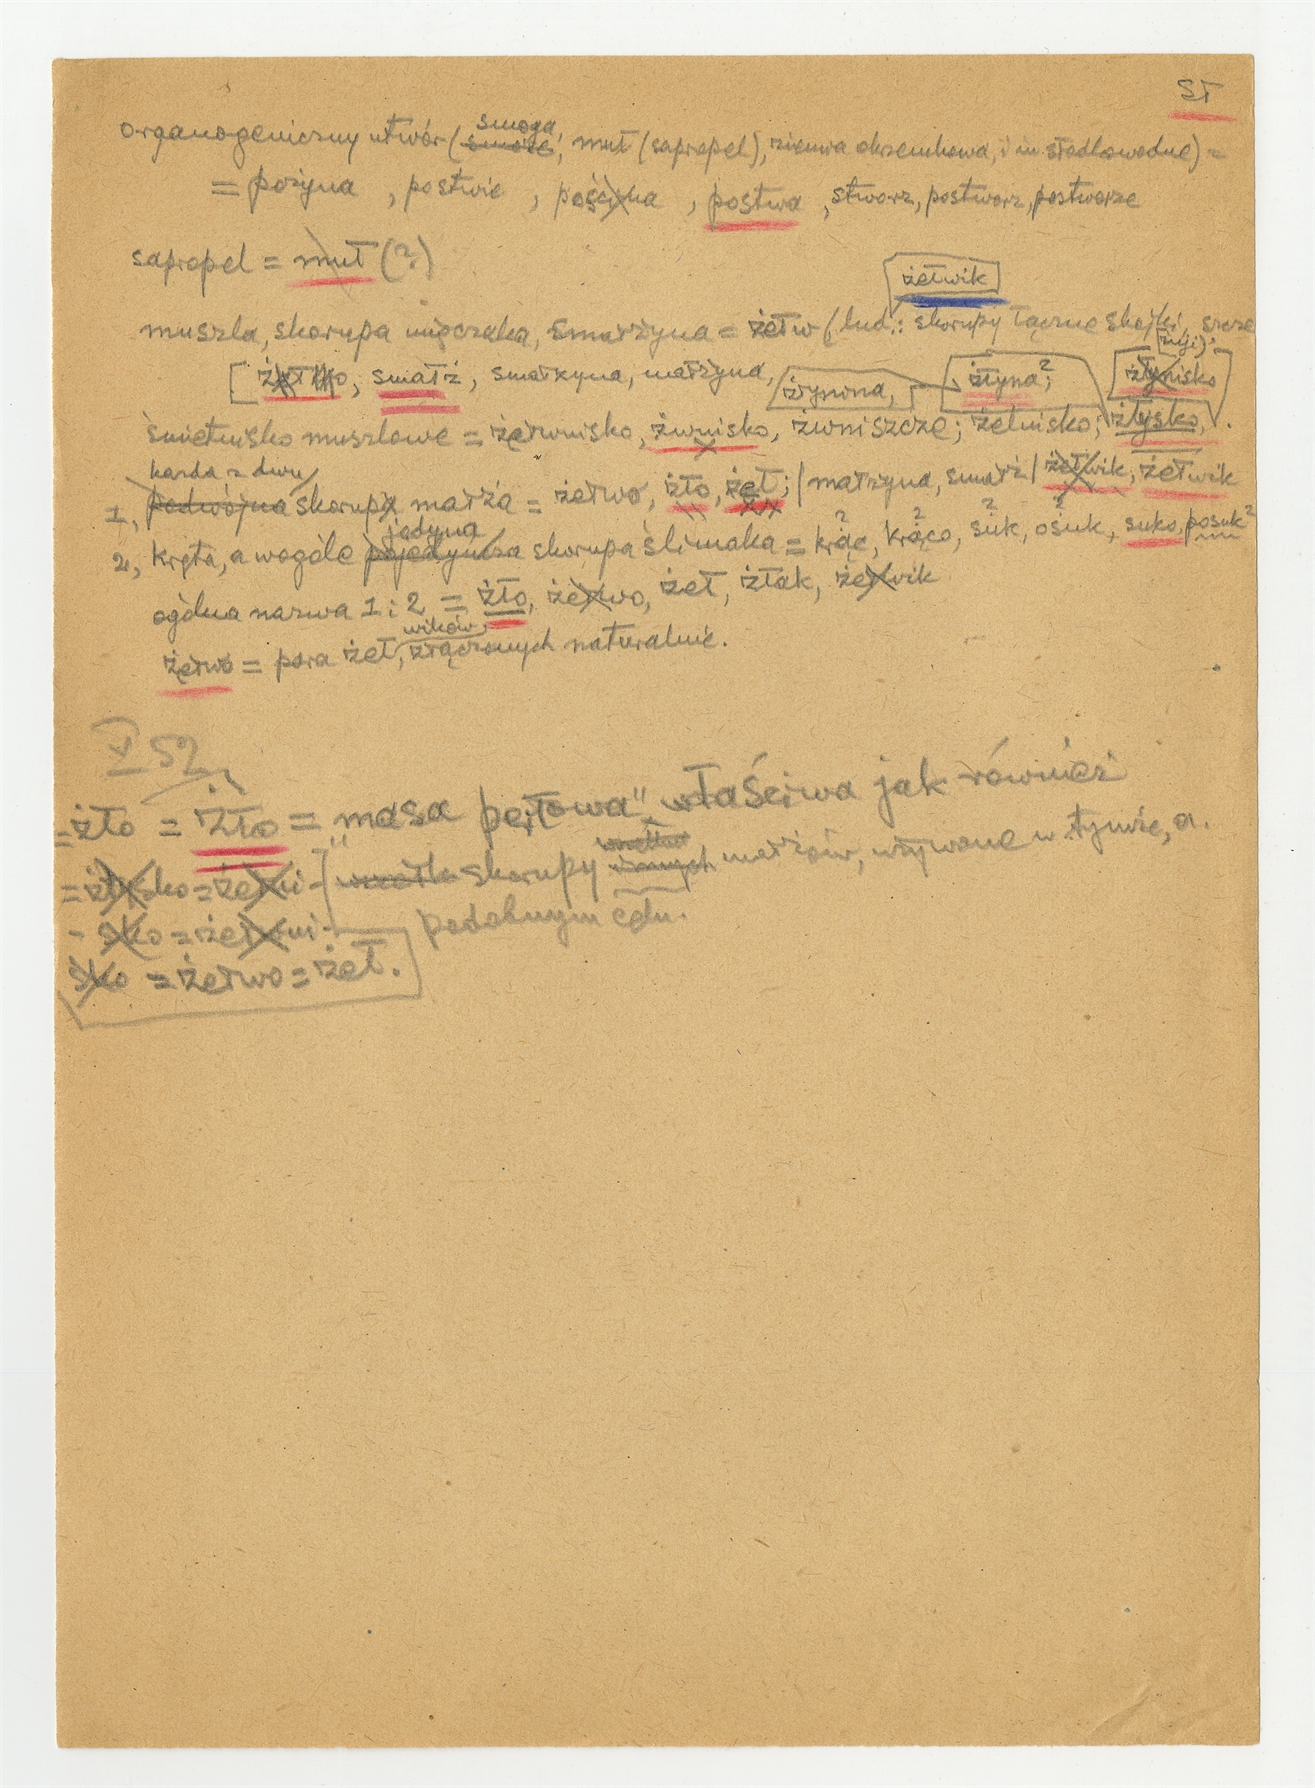 ST
smoga,
organogeniczny utwór (smoże, muł (sapropel), ziemia okrzemkowa, i in. słodkowodne) =
= pożyna, postwie, pościna, postwa, stworz, postworz, postworze
sapropel = muł (?)
żełwik
muszla, skorupa mięczaka, smarżyna = żełw (lud.: skorupy łączne skójki, szcze
żuji),
smałż, smałżyna, małżyna, żłynina, żłyna?; żłynisko
śmietnisko muszlowe = żełwnisko, żwnisko, żwniszcze; żelnisko; żłysko,
każda z dwu
1, podwójna skorupa małża = żełwo, żło, żeł; / małżyna, smałż / żełwik, żełwik
jedyna
2, kręta, a wogóle pojedyncza skorupa ślimaka = krąc, krąco, suk, osuk, suko, posuk?
ogólna nazwa 1 i 2 = żło, żełwo, żeł, żłak, żełwik
wików,
żełwo = para żeł, złączonych naturalnie.
V 52
= żło = żło = „masa perłowa", właściwa jak również
= żłysko = żełwi- skorupy innych małżów, używane w tymże, a.
- sko = żełwni- podobnym celu.
sko = żełwo = żeł.